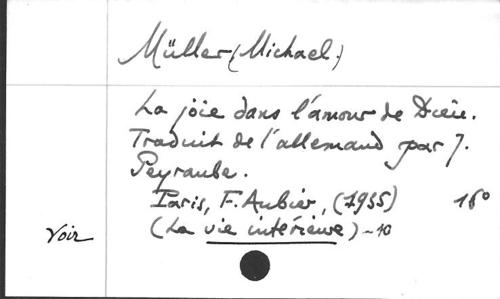 Müller (Michael.)
La joie dans l'amour de Dieu.
Traduit de l'allemand par J.
Peyraube.
Paris, F. Aubier, (1935) 16º
Voir (La vie intérieure) - 10